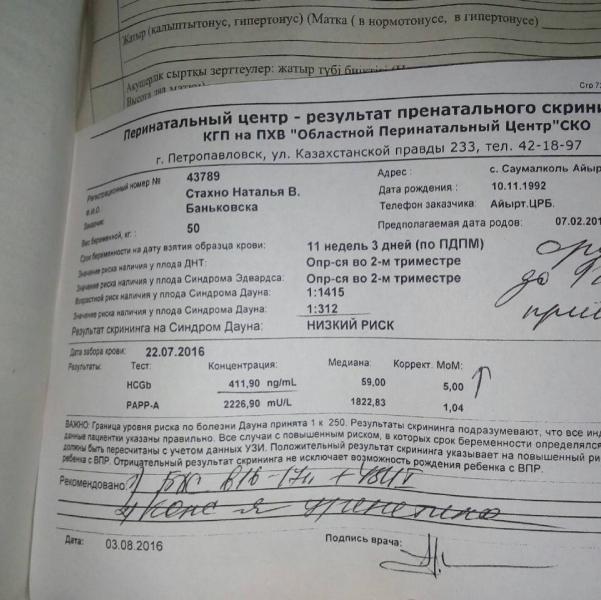 Жатыр (қалыптытонус, гипертонус) (Матка ( в нормотонусе, в гипертонусе)
Акушерлік сыртқы зерттеулер: жатыр түбі биіктігі
Стр 7
Перинатальный центр - результат пренатального скрини
КГП на ПХВ "Областной Перинатальный Центр"СКО
г. Петропавловск, ул. Казахстанской правды 233, тел. 42-18-97
Регистрационный номер № 43789 Адрес : с. Саумалколь Айырт
Ф.И.О. Стахно Наталья В. Дата рождения : 10.11.1992
Заказчик: Баньковска Телефон заказчика: Айырт.ЦРБ.
Вес беременной, кг. : 50 Предполагаемая дата родов: 07.02
Срок беременности на дату взятия образца крови: 11 недель 3 дней (по ПДПМ)
Значение риска наличия у плода ДНТ: Опр-ся во 2-м триместре
Значение риска наличия у плода Синдрома Эдвардса: Опр-ся во 2-м триместре
Возрастной риск наличия у плода Синдрома Дауна: 1:1415
Значение риска наличия у плода Синдрома Дауна: 1:312
Результат скрининга на Синдром Дауна: НИЗКИЙ РИСК
до
Дата забора крови: 22.07.2016
Результаты: Тест: Концентрация: Медиана: Коррект. МоМ:
HCGb 411,90 ng/mL 59,00 5,00 ↑
PAPP-A 2226,90 mU/L 1822,83 1,04
ВАЖНО: Граница уровня риска по болезни Дауна принята 1 к 250. Результаты скрининга подразумевают, что все инд
данные пациентки указаны правильно. Все случаи с повышенным риском, в которых срок беременности определялся
должны быть пересчитаны с учетом данных УЗИ. Положительный результат скрининга указывает на повышенный ри
ребенка с ВПР. Отрицательный результат скрининга не исключает возможность рождения ребенка с ВПР.
Рекомендовано: 1)
2) конс я генетика
Дата: 03.08.2016 Подпись врача: